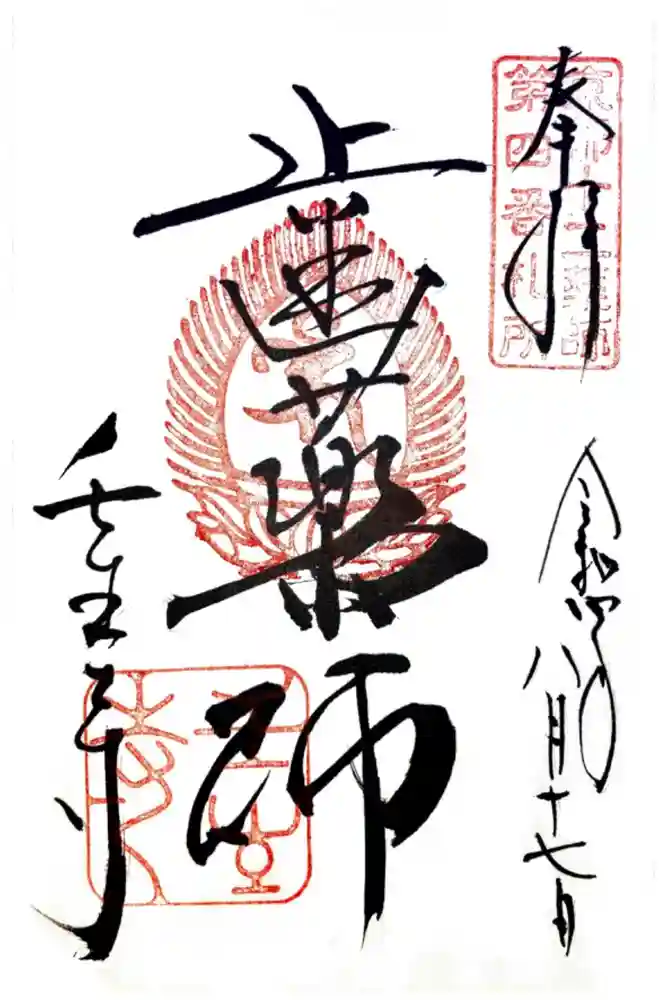 奉拝
京都十二薬師
第四番札所
令和四年八月十七日
歯薬師
壬生寺